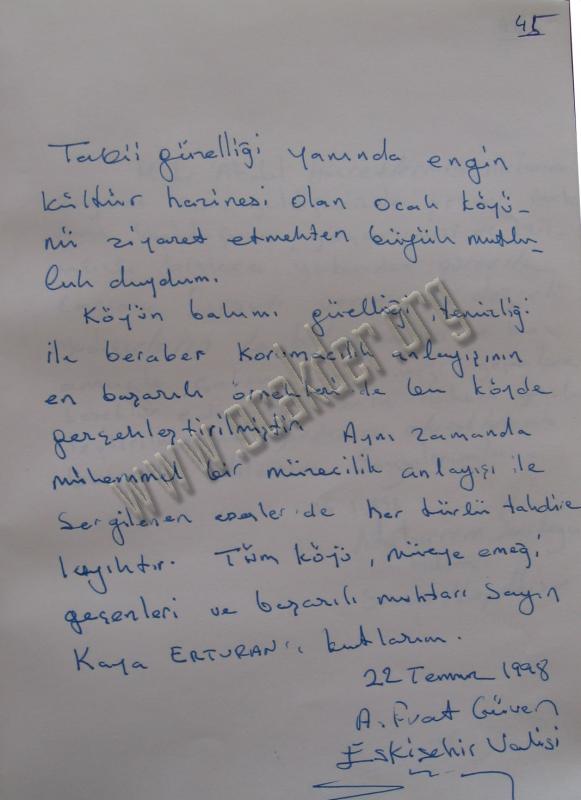 45
Tabii güzelliği yanında engin
kültür hazinesi olan Ocak köyü-
nü ziyaret etmekten büyük mutlu-
luk duydum.
Köyün bakımı, güzelliği, temizliği
ile beraber korumacılık anlayışının
en başarılı örnekleri de bu köyde
gerçekleştirilmiştir. Aynı zamanda
mükemmel bir müzecilik anlayışı ile
sergilenen eserler de her türlü takdire
layıktır. Tüm köyü, müzeye emeği
geçenleri ve başarılı muhtarı Sayın
Kaya ERTURAN'ı kutlarım.
22 Temmuz 1998
A. Fuat Güven
Eskişehir Valisi
www.ocakder.org